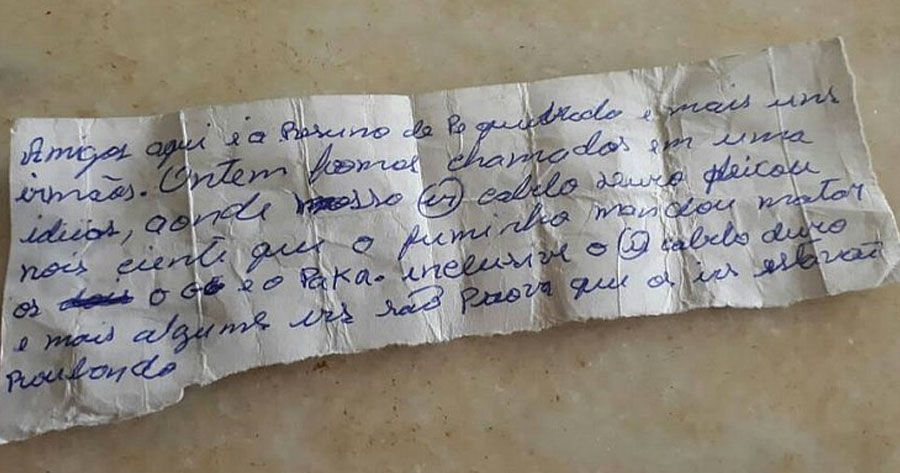 Amigos aqui é o Resumo do Pe quebrado e mais uns
irmãos. Ontem fomos chamados em uma
ideias, aonde nosso (ir) cabelo duro deixou
nois ciente que o fuminho mandou matar
os dois o GG e o Paka. inclusive o (ir) cabelo duro
e mais algums irs são Prova que os irs estavão
Roubando